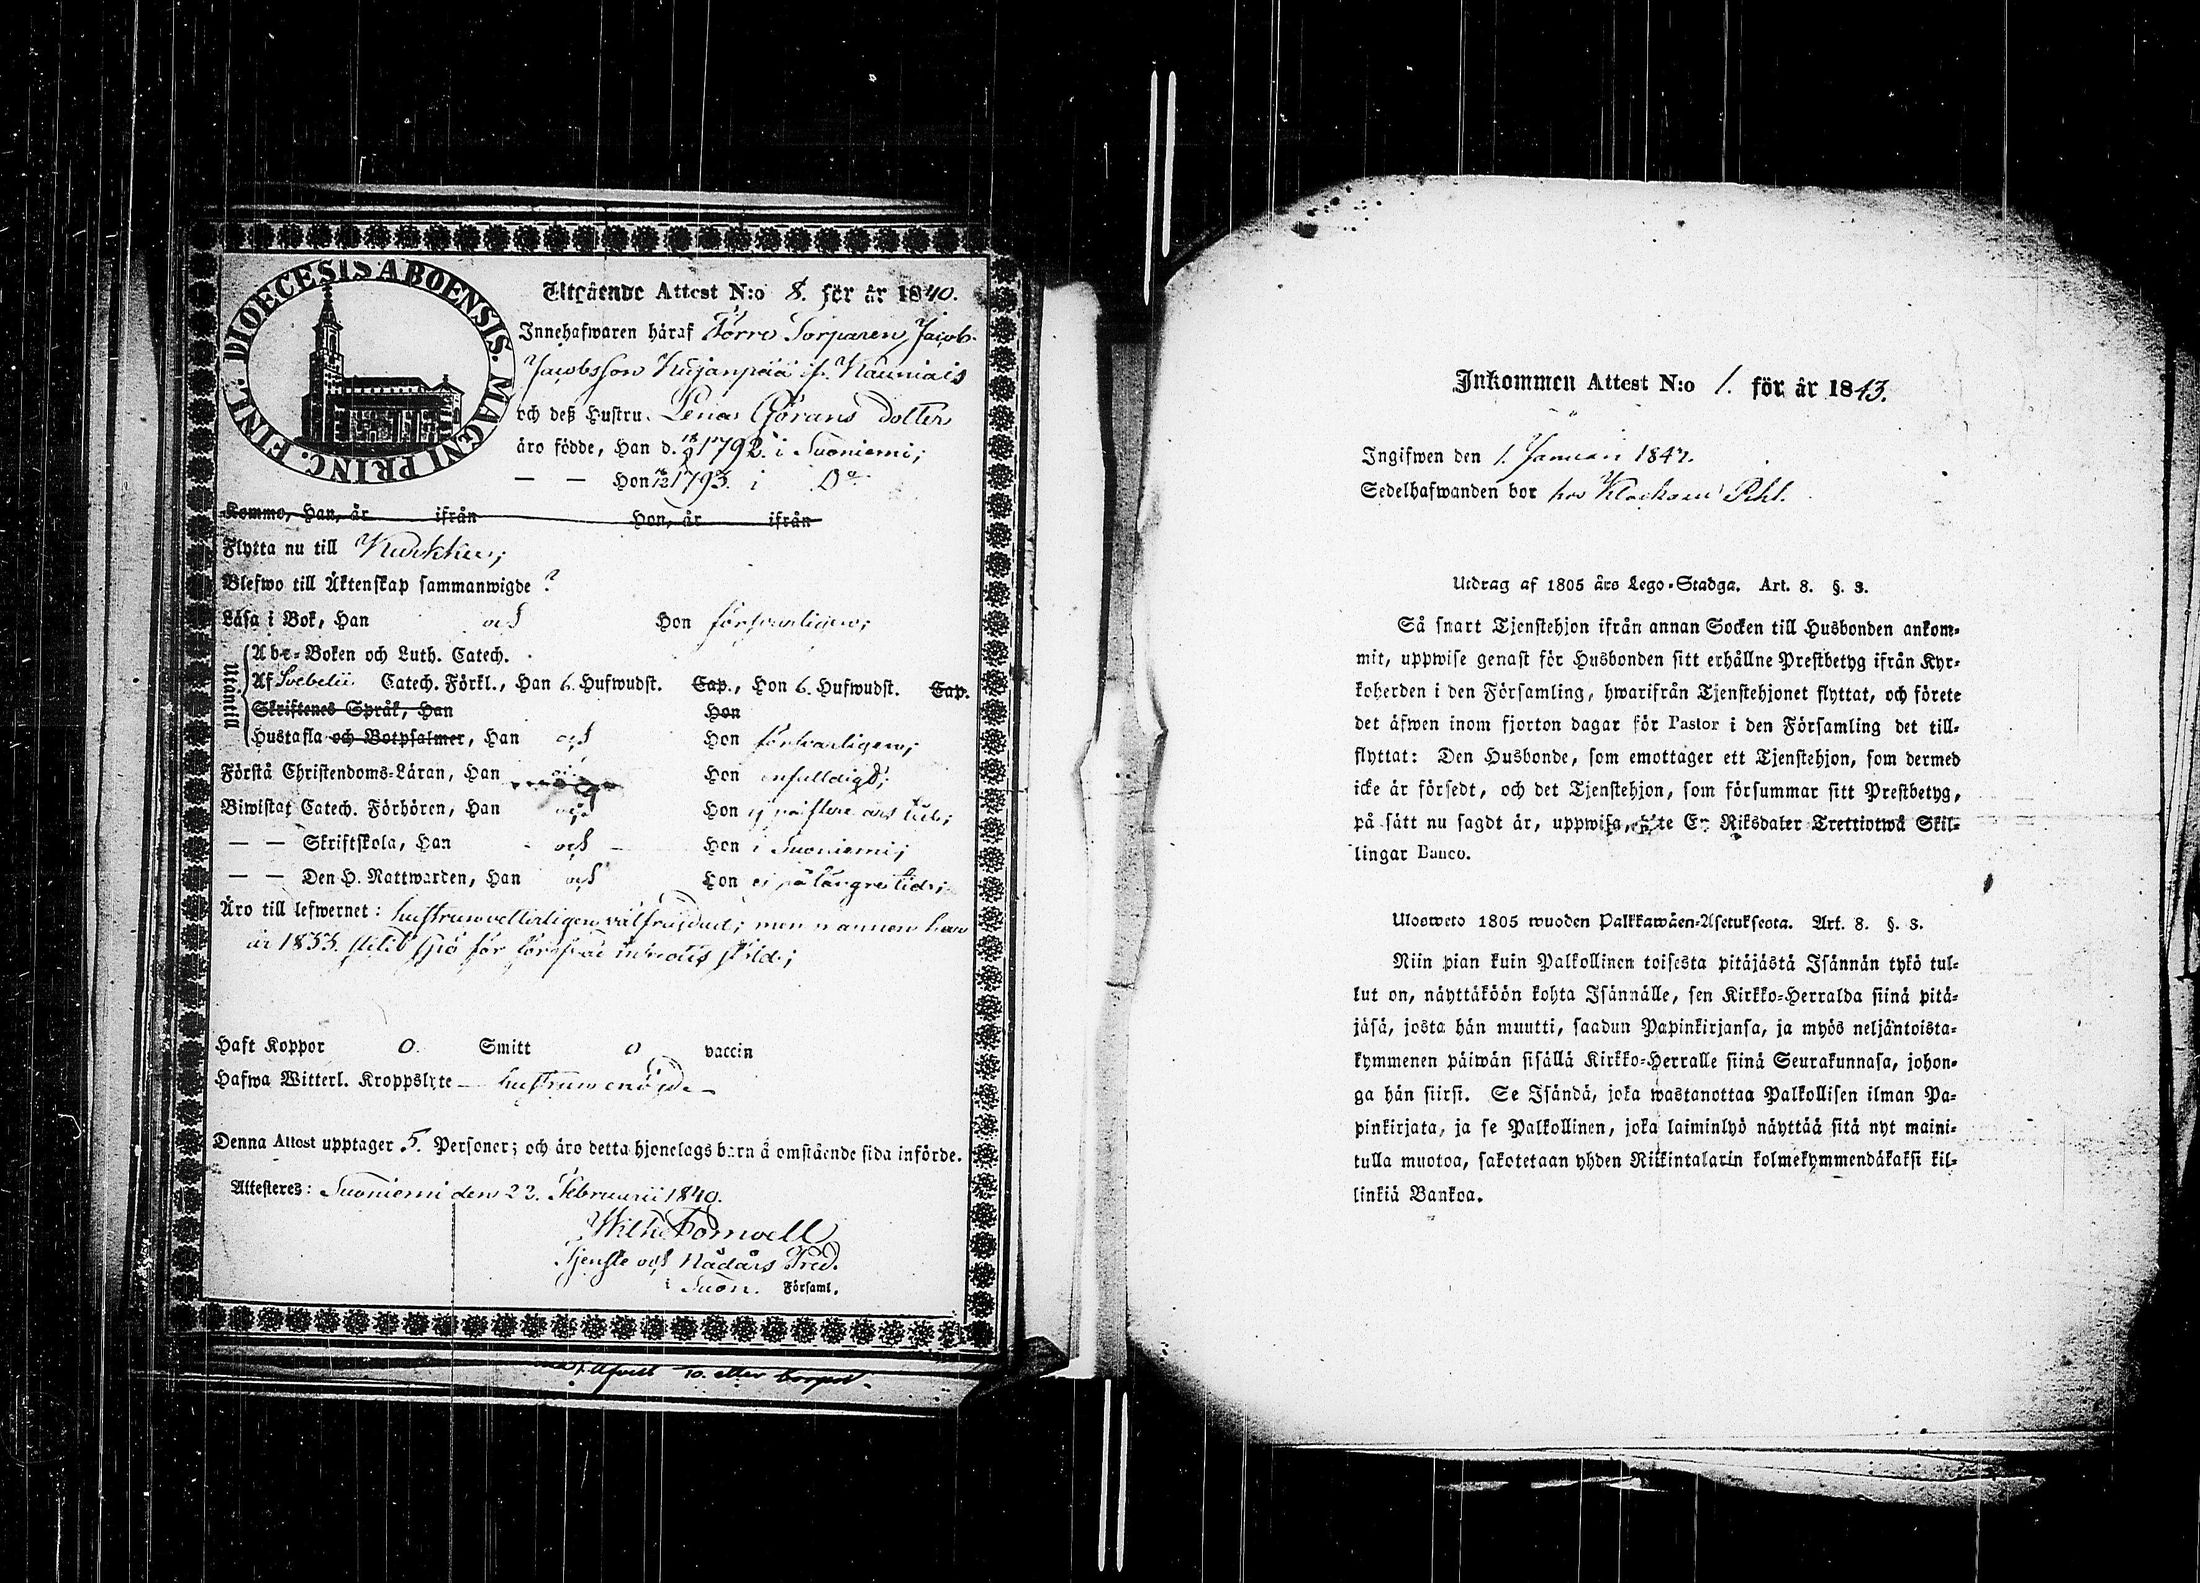 DIOECESIS ABOENSIS. MAGNI PRINC. FINL.
Utgående Attest N:o 8. för år 1840.
Innehafwaren häraf Förre Torparen Jacob
Jacobsson Kujanpää if. Kauniais
och deß Hustru Lena Görans dotter
äro födde, Han d. 18/9 1792. i Suoniemi;
— — Hon 1793. i Do
Kommo, Han, år ifrån Hon, år ifrån
Flytta nu till Kurkku;
Blefwo till Äktenskap sammanwigde ?
Läsa i Bok, Han och Hon försvarligen;
Utantill
Abc-Boken och Luth. Catech.
Af Svebelii Catech. Förkl., Han 6. Hufwudst. Cap., Hon 6. Hufwudst. Cap.
Skriftenes Språk, Han Hon
Hustafla och Botpsalmer, Han och Hon försvarligen;
Förstå Christendoms-Läran, Han och Hon enfaldigt;
Biwistat Catech. Förhören, Han och Hon ej på flere års tid;
— — Skriftskola, Han och Hon i Suoniemi;
— — Den H. Nattwarden, Han och Hon ej på längre tid;
Äro till lefwernet: hustrun välfräjdad; men mannen har
år 1833. slitit spö för
Haft Koppor 0. Smitt 0 vaccin
Hafwa Witterl. Kroppslyte — hustrun enögd —
Denna Attest upptager 5. Personer; och äro detta hjonelags barn å omstående sida införde.
Attesteres: Suoniemi den 22. Februarii 1840.
Wilh. Fomoell
Tjenste och Nådårs Pred.
i Suon. Församl.
Inkommen Attest N:o 1. för år 1843.
Ingifwen den 1. Januari 1843.
Sedelhafwanden bor hos Klockare Pihl.
Utdrag af 1805 års Lego-Stadga. Art. 8. §. 3.
Så snart Tjenstehjon ifrån annan Socken till Husbonden ankom-
mit, uppwise genast för Husbonden sitt erhållne Prestbetyg ifrån Kyr-
koherden i den Församling, hwarifrån Tjenstehjonet flyttat, och förete
det äfwen inom fjorton dagar för Pastor i den Församling det till-
flyttat: Den Husbonde, som emottager ett Tjenstehjon, som dermed
icke är försedt, och det Tjenstehjon, som försummar sitt Prestbetyg,
på sätt nu sagdt är, uppwisa, böte En Riksdaler Trettiotwå Skil-
lingar Banco.
Ulosweto 1805 wuoden Palkkawäen-Asetuksesta. Art. 8. §. 3.
Niin pian kuin Palkollinen toisesta pitäjästä Isännän tykö tul-
lut on, näyttäköön kohta Isännälle, sen Kirkko-Herralda siinä pitä-
jäsä, josta hän muutti, saadun Papinkirjansa, ja myös neljäntoista-
kymmenen päiwän sisällä Kirkko-Herralle siinä Seurakunnasa, johon-
ga hän siirsi. Se Isändä, joka wastanottaa Palkollisen ilman Pa-
pinkirjata, ja se Palkollinen, joka laiminlyö näyttää sitä nyt maini-
tulla muotoa, sakotetaan yhden Riikintalarin kolmekymmendäkaksi kil-
linkiä Bankoa.